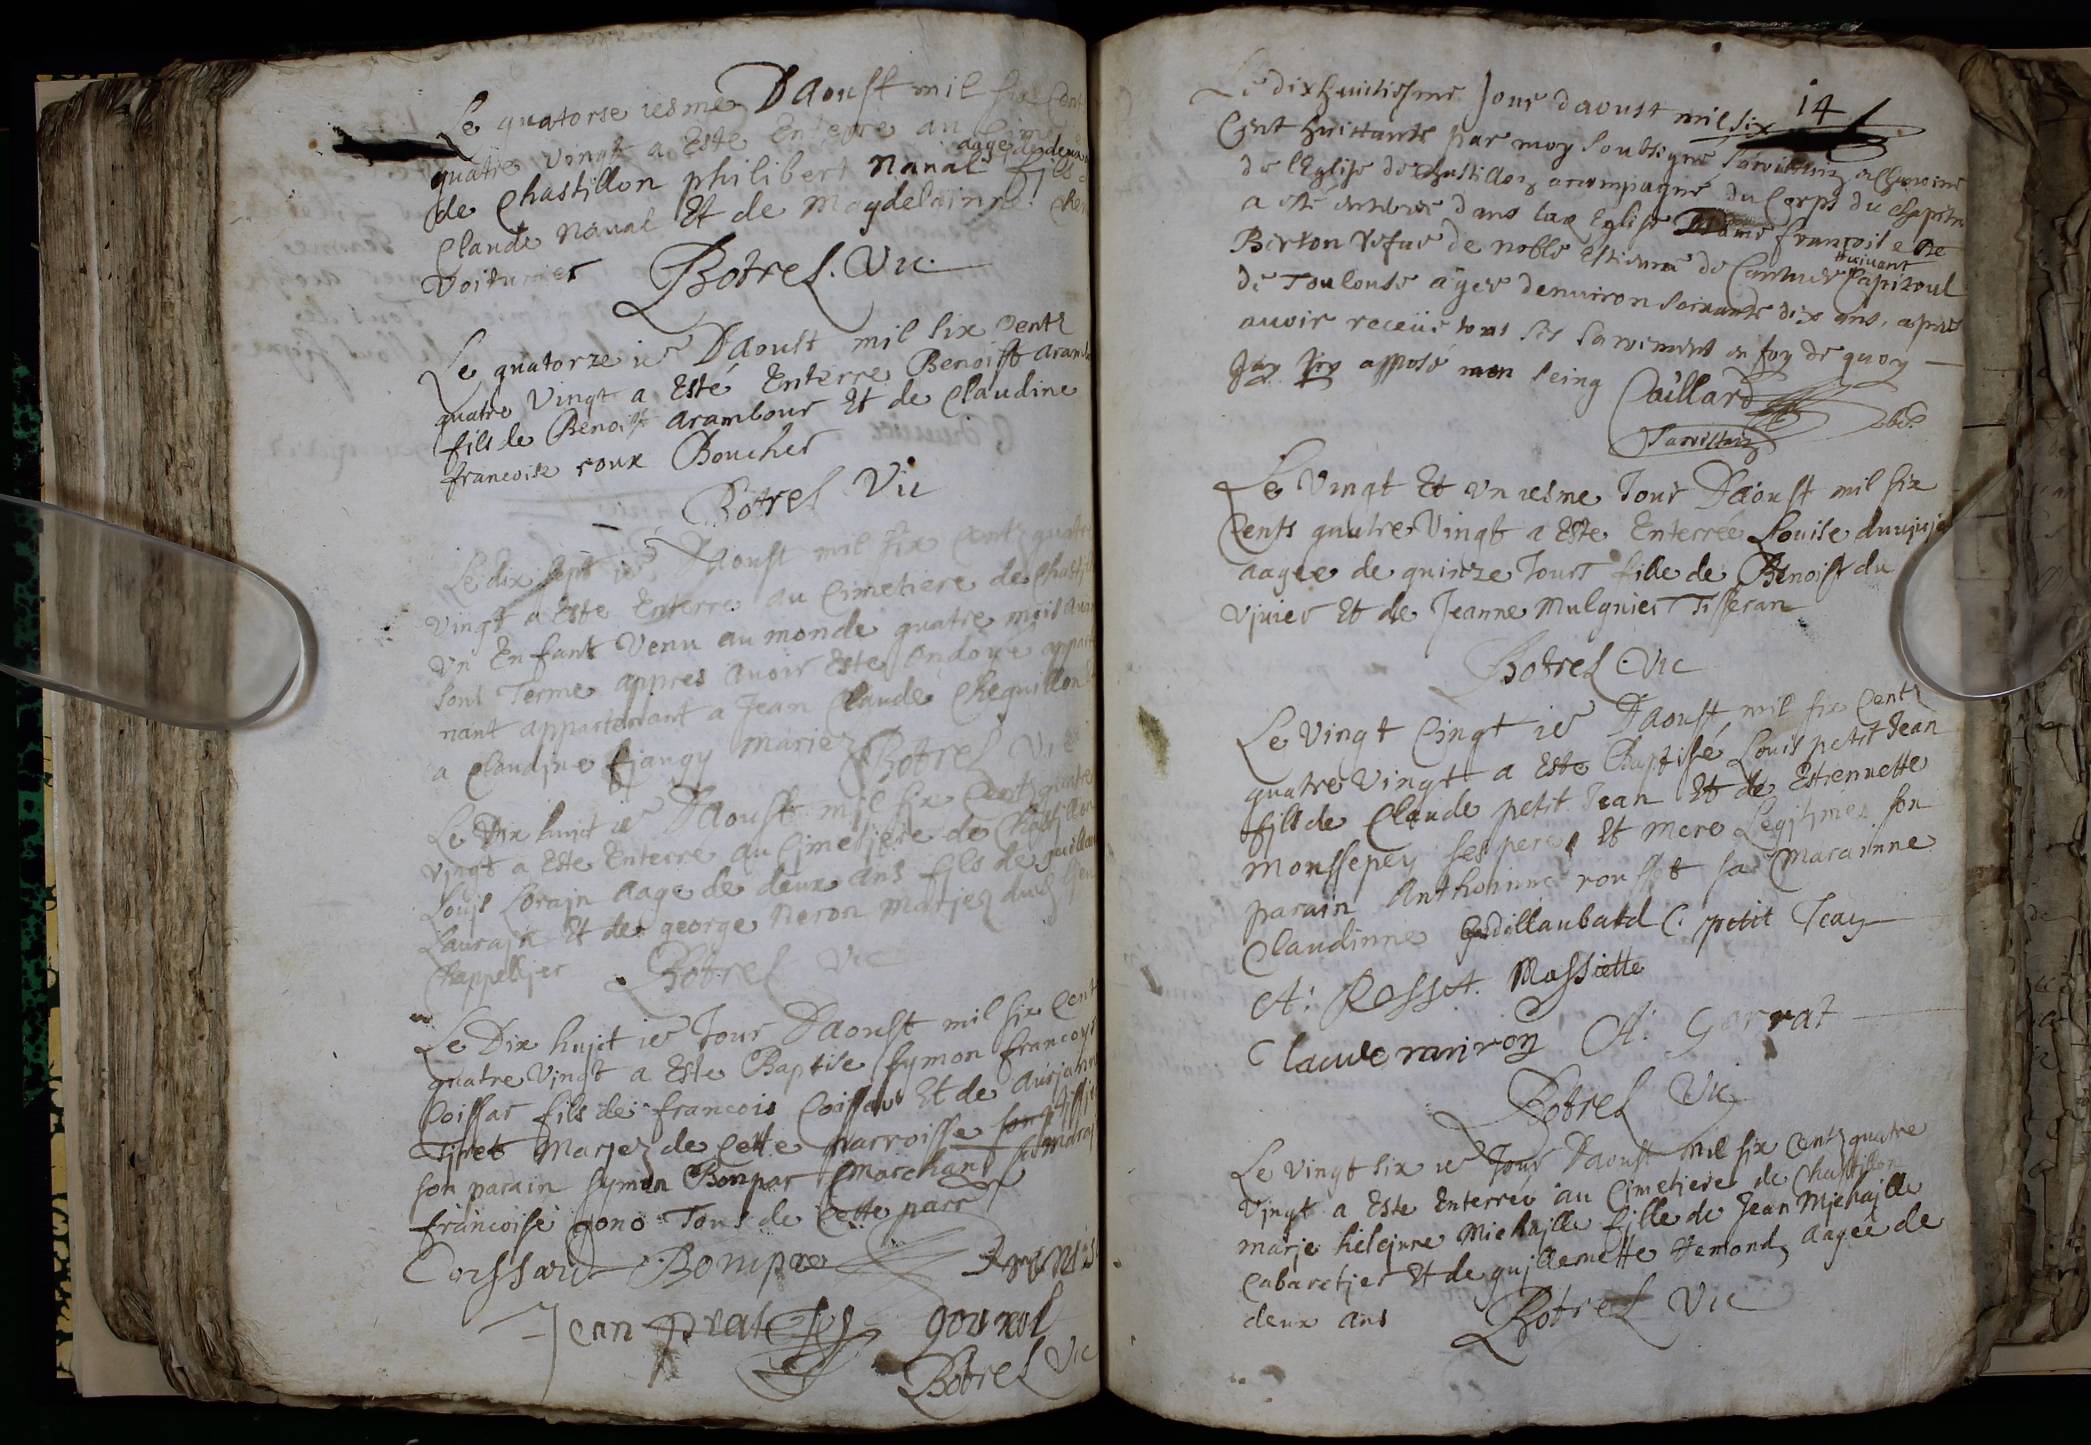 Le quatorse iesme Daoust mil six Cent
quatre Vingt a Este Enterre au
aage de deux
de Chastillon philibert Nanal fils
Claude Nanal Et de Magdelainne
Voiturier Botrel. Vic.
Le quatorze ie Daoust mil six Centz
quatre Vingt a Esté Enterre Benoist
fils de Benoist arambour Et de Claudine
francoise roux Boucher
Botrel Vic
Le dix sept ie Daoust mil six Centz quatre
Vingt a Este Enterre au Cimetiere de
Vn Enfant Venu au monde quatre mois
sons Terme appres avoir Este Ondoyé
nant appartenant a Jean Claude Chequillon
a Claudine fjangy mariez Botrel Vic
Le Dix huict ie Daoust mil six Centz quatre
Vingt a Este Enterré au Cjmetjere de Chastillon
Louis Lorajn aage de deux ans fils de
Laurajn Et de george Neron Marjez dud
Chappelljer Botrel Vic
Le Dix hujct ie Jour Daoust mil six Cent
quatre Vingt a Este Baptise symon francoys
Coissar fils de francois Coissar Et de
Tjret Marjez de Cette parroisse
son parain symon Bonpar Marchant
francoise gono Tous de Cette parr
Coissard Bompar
Jean
Botrel Vic
14
Le dixhuitiesme Jour daoust mil six
Cent huittante par moy soubsigné Sacristain et Chanoine
de l'Eglise de Chastillon accompagné du Corps du chapitre
a esté enterree dans lad Eglise Dame francoise De
Berton Vefue de noble Estienne de
viuant Capitoul
de Toulouse agee denuiron soixante dix ans, apres
auoir receüe tous ses sacrements en foy de quoy
Jay apposé mon seing Caillard
Sacristain
Le Vingt Et Vn iesme Jour Daoust mil six
Cents quatre Vingt a Este Enterrée Louise
aagee de quinze Jours fille de Benoist du
Vjuier Et de Jeanne Mulgnier Tisseran
Botrel Vic
Le Vingt Cinqt ie Daoust mil six Centz
quatre Vingt a Este Baptissé Louis petit Jean
fils de Claude petit Jean Et de Estiennette
Monssepey ses pere Et mere Legitimes son
parain Anthoinne rousset sa Maraïnne
Claudinne C. petit Jean
A: Rosset Massiette
A: Garrat
Botrel Vic
Le Vingt six ie Jour Daoust Mil six Centz quatre
Vjngt a Este Enterrée au Cjmetiere de Chastillon
marje helejnne Miehajlle fille de Jean Mjehajlle
Cabaretjer Et de gujllemette Hemond aageé de
deux ans Botrel Vic